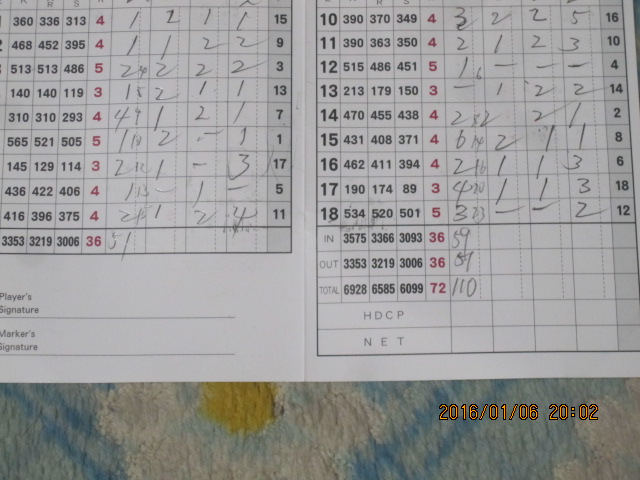 K R S
360 336 313 4 1 2 1 1 15
468 452 395 4 1 1 2 2 9
513 513 486 5 2 2 2 3
140 140 119 3 2 1 1 13
310 310 293 4 1 2 1 7
565 521 505 5 2 - 1 1
145 129 114 3 1 - 3 17
436 422 406 4 - 1 - 5
416 396 375 4 1 2 4 11
3353 3219 3006 36 51
Player's
Signature
Marker's
Signature
10 390 370 349 4 3 2 2 5 16
11 390 363 350 4 2 1 2 3 10
12 515 486 451 5 1 6 - - - 4
13 213 179 150 3 - 1 2 2 14
14 470 455 438 4 2 2 1 2
15 431 408 371 4 6 2 1 1 8
16 462 411 394 4 2 1 1 3 6
17 190 174 89 3 4 1 1 3 18
18 534 520 501 5 3 - - 2 12
IN 3575 3366 3093 36 59
OUT 3353 3219 3006 36 51
TOTAL 6928 6585 6099 72 110
HDCP
NET
2016/01/06 20:02